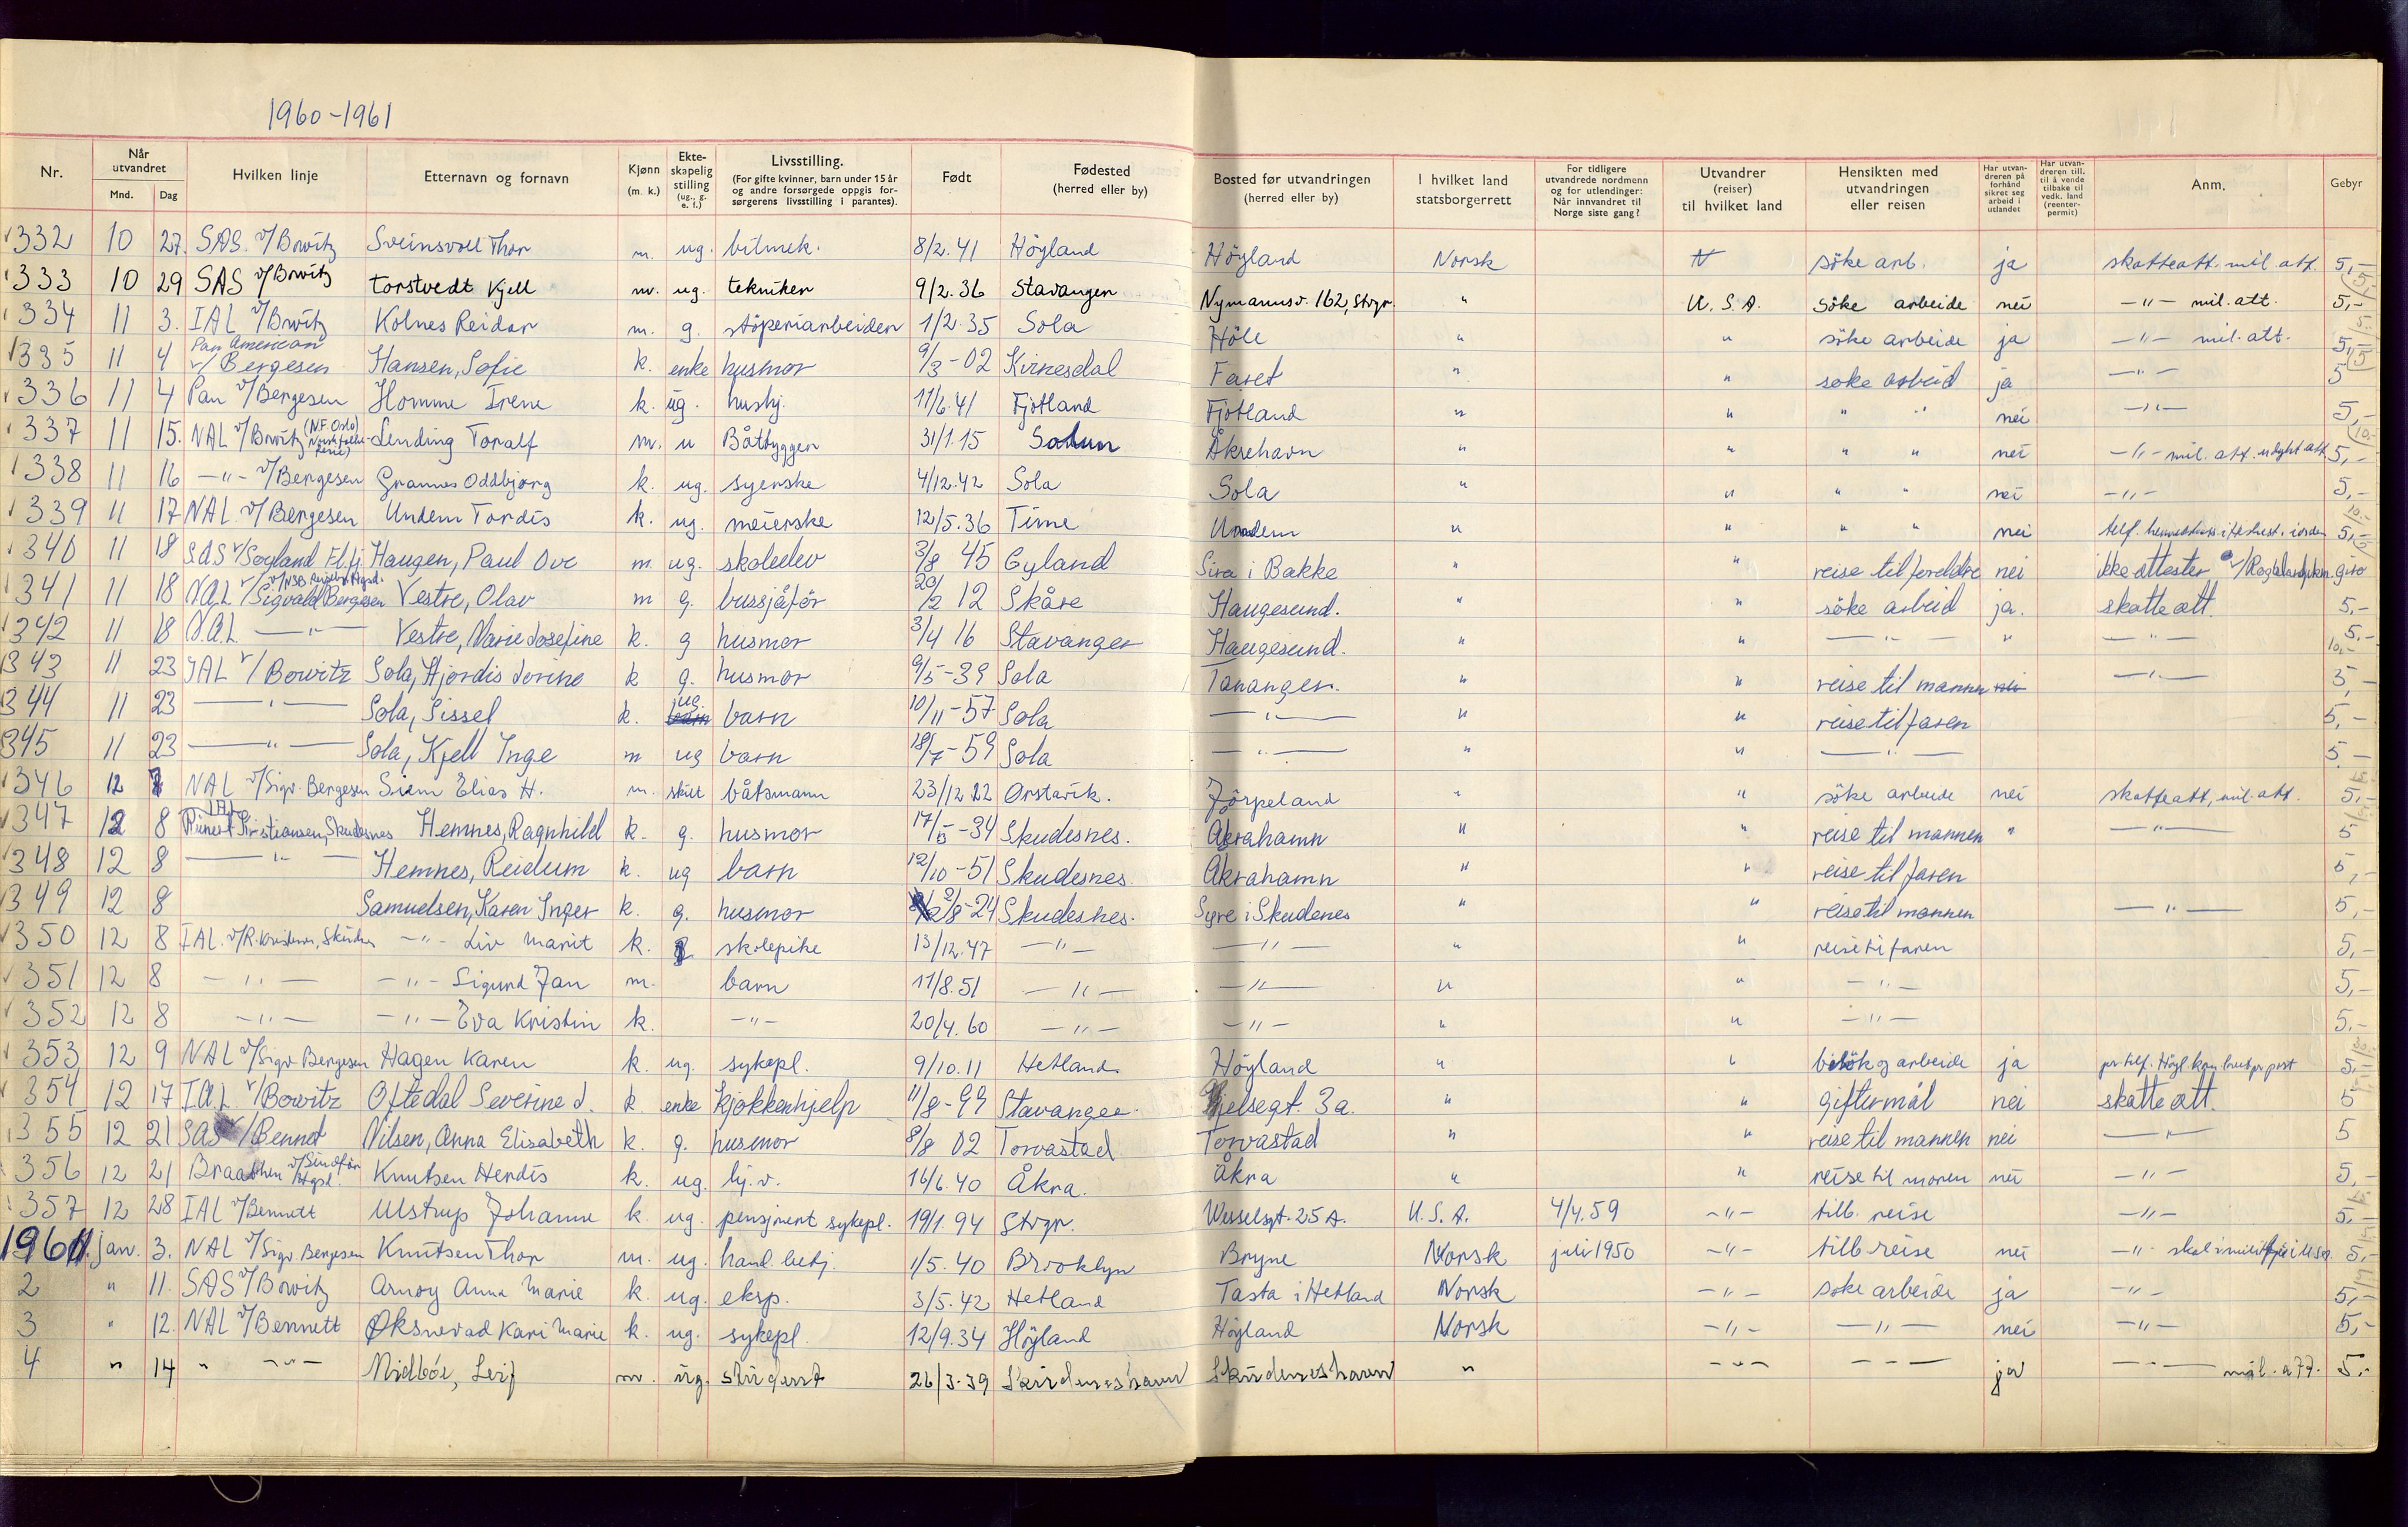 1960-1961
Nr. | Når utvandret Mnd. Dag | Hvilken linje | Etternavn og fornavn | Kjønn (m. k.) | Ekteskapelig stilling (ug., g. e. f.) | Livsstilling. (For gifte kvinner, barn under 15 år og andre forsørgede oppgis forsørgerens livsstilling i parantes). | Født | Fødested (herred eller by) | Bosted før utvandringen (herred eller by) | I hvilket land statsborgerrett | For tidligere utvandrede nordmenn og for utlendinger: Når innvandret til Norge siste gang? | Utvandrer (reiser) til hvilket land | Hensikten med utvandringen eller reisen | Har utvandreren på forhånd sikret seg arbeid i utlandet | Har utvandreren till. til å vende tilbake til vedk. land (reenterpermit) | Anm. | Gebyr
332 10 27. SAS. v/Bowitz Sveinsvoll Thor m. ug. bilmek. 8/2.41 Høyland Høyland Norsk søke arb. ja skatteatt. mil. att. 5,-
333 10 29 SAS v/Bowitz Torstvedt Kjell m. ug. tekniker 9/2.36 Stavanger Nymannsv. 162, Stvgr. " U.S.A. søke arbeide nei -"- mil. att. 5,-
334 11 3. IAL v/Bowitz Kolnes Reidar m. g. støperiarbeider 1/2.35 Sola Høle " " søke arbeide ja -"- mil. att. 5,-
335 11 4 Pan American v/Bergesen Hansen, Sofie k. enke husmor 9/3-02 Kirnesdal Faret " " søke arbeid ja -"- 5
336 11 4 Pan v/Bergesen Homme Irene k. ug. hushj. 11/6.41 Fjotland Fjotland " " " " nei -"- 5,-
337 11 15. NAL v/Bowitz (N.F. Oslo) Lending Toralf m. u Båtbygger 31/1.15 Solum Åkrehavn " " " " nei -"- mil. att. 5,-
338 11 16 -"- v/Bergesen Grannes Oddbjørg k. ug. syerske 4/12.42 Sola Sola " " " " nei -"- 5,-
339 11 17 NAL v/Bergesen Undem Tordis k. ug. meierske 12/5.36 Time Undem " " " " nei 5,-
340 11 18 SAS v/Sogland Fl.fj. Haugen, Paul Ove m. ug. skoleelev 3/8 45 Gyland Sira i Bakke " " reise til foreldre nei ikke attester giro
341 11 18 N.A.L. v/Sigvald Bergesen Vestre, Olav m g. bussjåfør 20/2 12 Skåre Haugesund. " " søke arbeid ja. skatte att. 5,-
342 11 18 N.A.L. -"- Vestre, Marie Josefine k. g husmor 3/4 16 Stavanger Haugesund. " " -"- " -"- 5,-
343 11 23 IAL v/Bowitz Sola, Hjørdis Jorine k g. husmor 9/5-39 Sola Tananger. " " reise til mannen -"- 5,-
344 11 23 -"- Sola, Sissel k. ug. barn 10/11-57 Sola -"- " " reise til faren 5,-
345 11 23 -"- Sola, Kjell Inge m ug barn 18/7-59 Sola -"- " " -"- 5,-
346 12 7 NAL v/Sigv. Bergesen Siem Elias H. m. skilt båtsmann 23/12 22 Ørstavik. Jørpeland " " søke arbeide nei skatteatt, mil. att. 5,-
347 12 8 Kristiansen, Skudesnes Hemnes, Ragnhild k. g. husmor 17/5-34 Skudesnes. Akrahamn " " reise til mannen " -"- 5
348 12 8 -"- Hemnes, Reidum k. ug barn 12/10-51 Skudesnes. Akrahamn " " reise til faren 5,-
349 12 8 Samuelsen, Karen Inger k. g. husmor 2/8-24 Skudesnes. Syre i Skudenes " " reise til mannen -"- 5,-
350 12 8 IAL. -"- Liv Marit k. skolepike 13/12.47 -"- -"- " " reise til faren 5,-
351 12 8 -"- -"- Sigurd Jan m. barn 11/8.51 -"- -"- " " -"- 5,-
352 12 8 -"- -"- Eva Kristin k. -"- 20/4.60 -"- -"- " " -"- 5,-
353 12 9 NAL v/Sigv Bergesen Hagen Karen k. ug. sykepl. 9/10.11 Hetland. Høyland " " besøk og arbeide ja 5,-
354 12 17 I.A.L. v/Bowitz Oftedal Severine J. k. enke kjøkkenhjelp 11/8-99 Stavanger. 3a. " " giftermål nei skatte att. 5
355 12 21 SAS v/Bennet Nilsen, Anna Elisabeth k. g. husmor 8/8 02 Torvastad Torvastad " " reise til mannen nei -"- 5
356 12 21 Braathen Knutsen Herdis k. ug. hj.v. 16/6.40 Åkra. Åkra " " reise til moren nei -"- 5,-
357 12 28 IAL v/Bennett Ulstrup Johanne k. ug. pensjonert sykepl. 19/1.94 Stvgr. Wesselsgt. 25A. U.S.A. 4/4.59 -"- tilb. reise -"- 5,-
1961 1. jan. 3. NAL v/Sigv Bergesen Knutsen Thor m. ug. hand. betj. 1/5.40 Brooklyn Bryne Norsk juli 1950 -"- tilb. reise nei -"- 5,-
2 " 11. SAS v/Bowitz Arnøy Anna Marie k. ug. eksp. 3/5.42 Hetland Tasta i Hetland Norsk -"- søke arbeide ja -"- 5,-
3 " 12. NAL v/Bennett Øksnevad Kari Marie k. ug. sykepl. 12/9.34 Høyland Høyland Norsk -"- -"- nei -"- 5,-
4 " 14 " -"- Midbøe, Leif m. ug. student 26/3.39 Skudeneshavn Skudeneshavn " -"- -"- ja -"- mil. att. 5.-